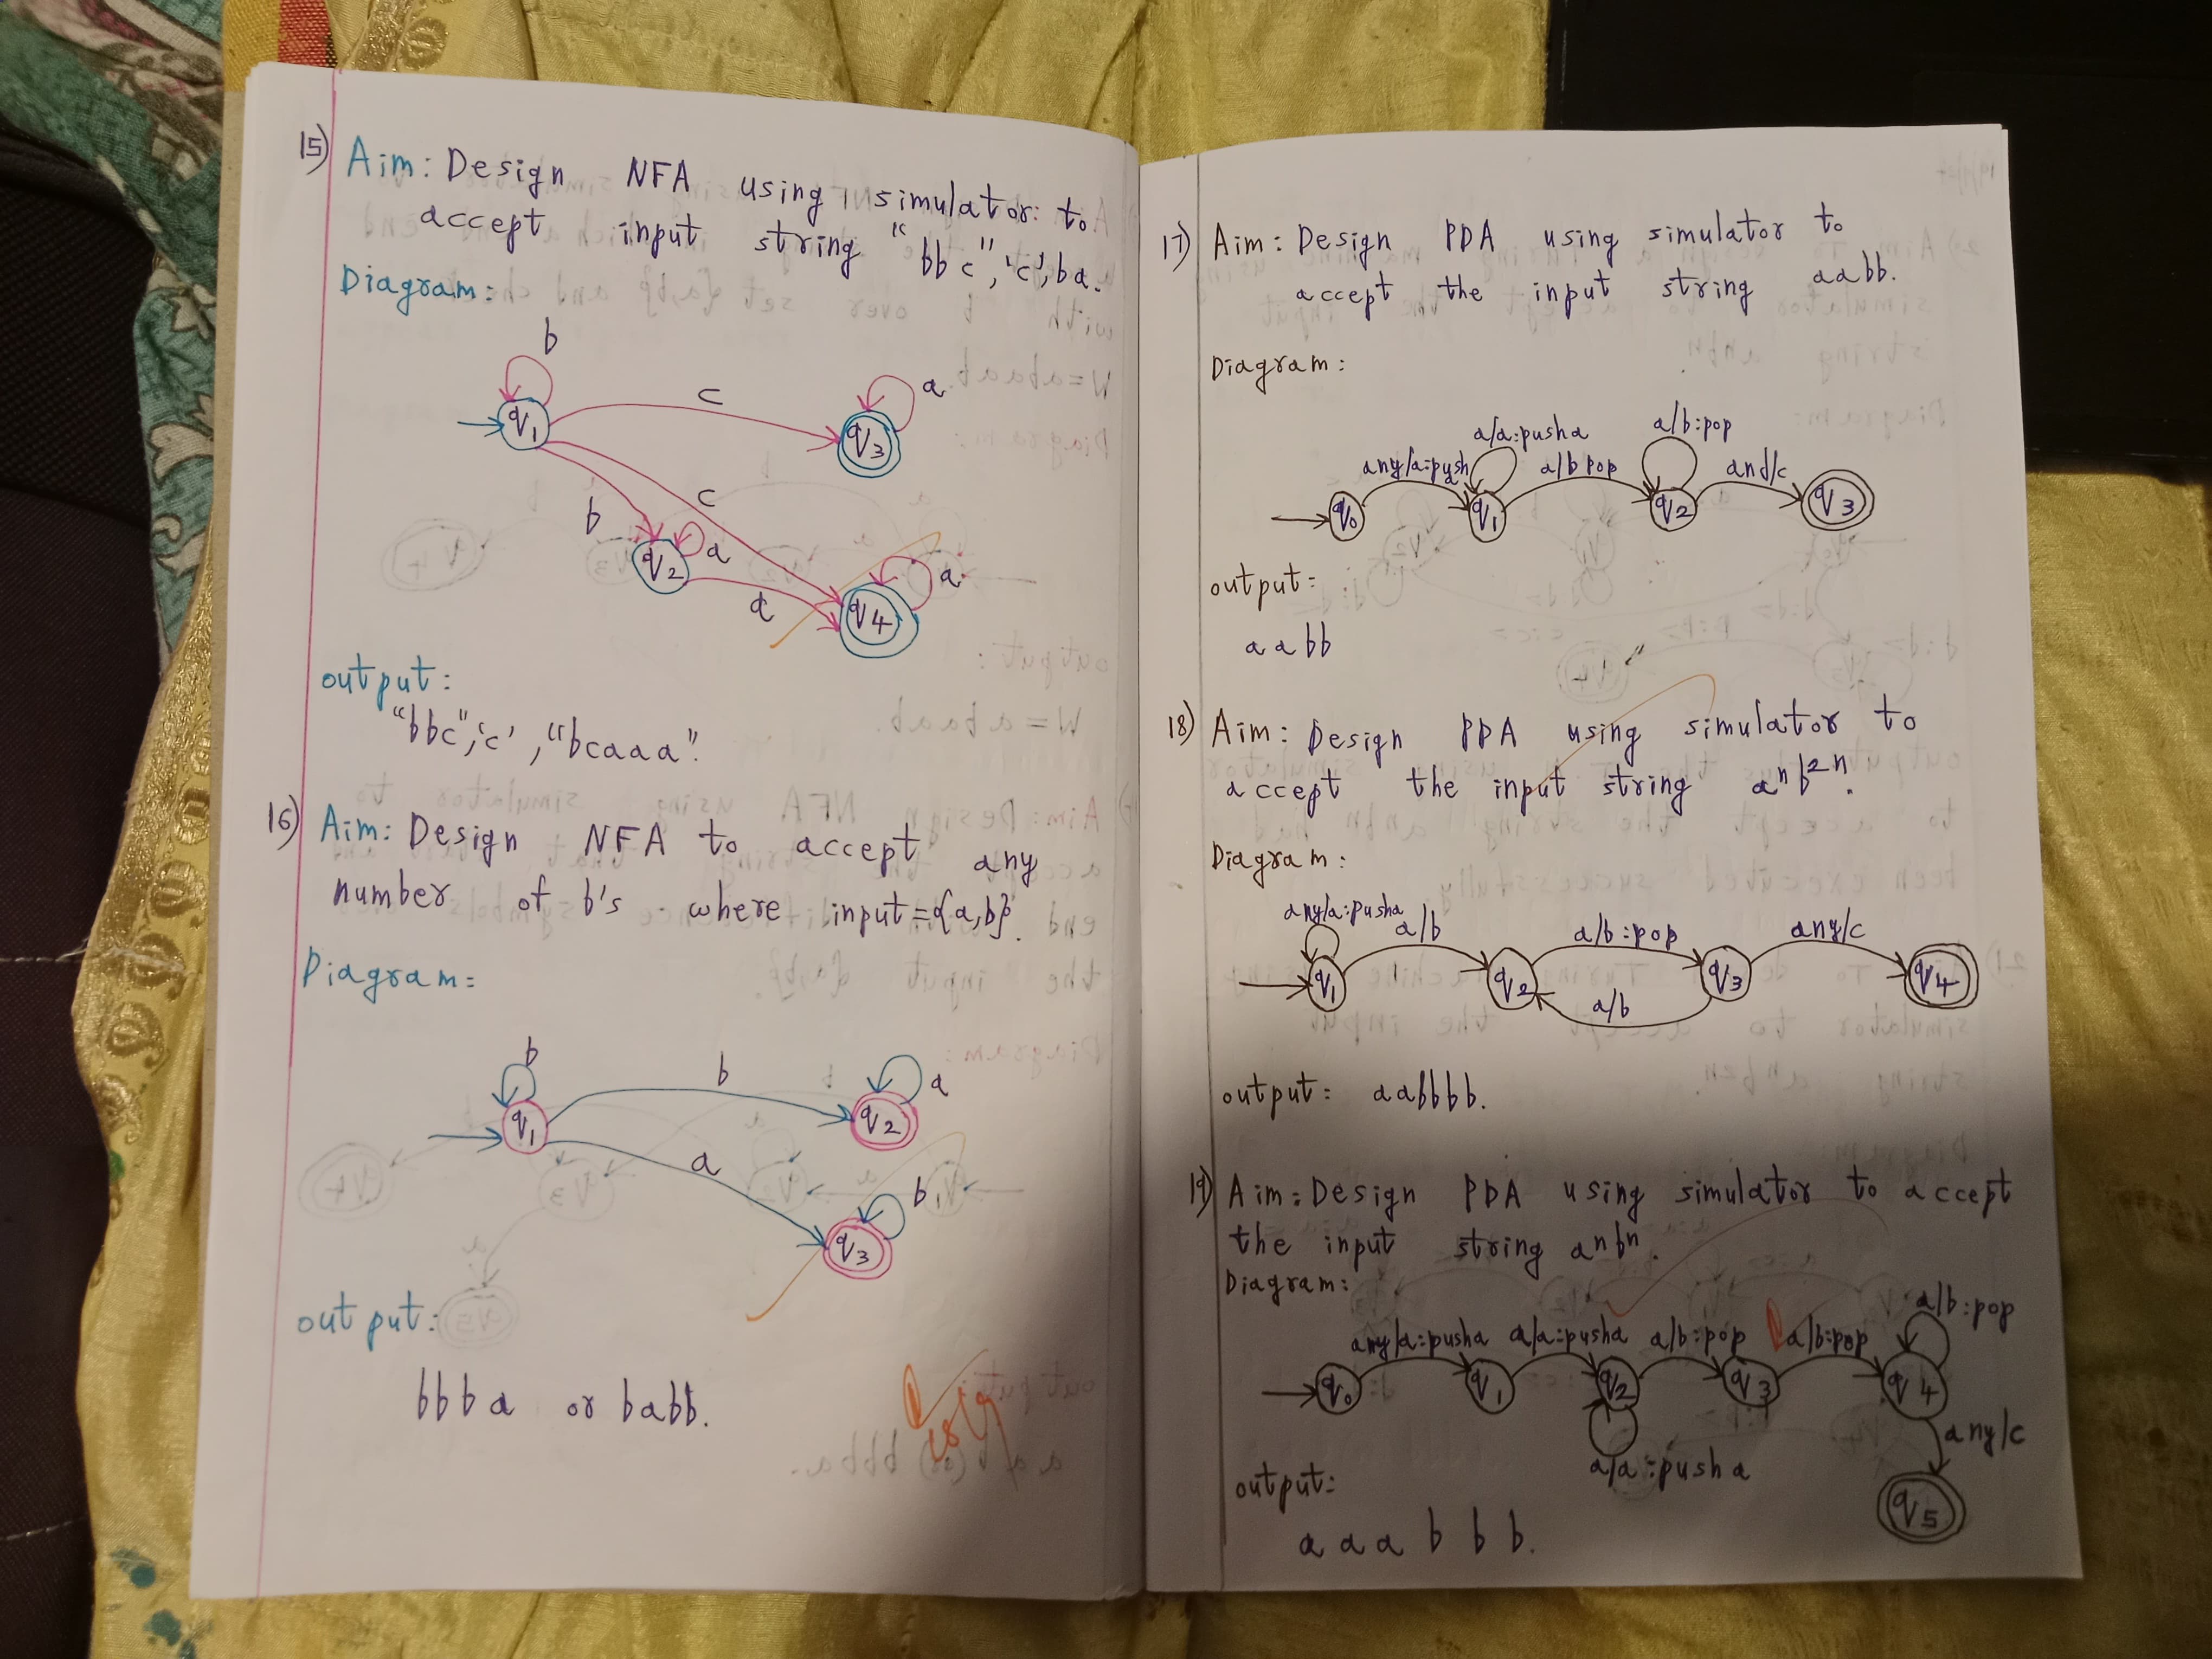 15) Aim: Design NFA using simulator: to
accept input string "bbc",'c',ba.
Diagram:
b
c
a
q1
q3
c
b
a
q2
a
a
q4
output:
"bbc",'c',"bcaaa".
16) Aim: Design NFA to accept any
number of b's where input={a,b}.
Diagram:
b
b
a
q1
q2
a
b
q3
output:
bbba or babb.
17) Aim: Design PDA using simulator to
accept the input string aabb.
Diagram:
a/a:pusha
a/b:pop
any/a:push a
a/b pop
and/c
q0
q1
q2
q3
output:
aabb
18) Aim: Design PDA using simulator to
accept the input string aⁿb²ⁿ.
Diagram:
any/a:pusha
a/b
a/b:pop
any/c
q1
q2
q3
q4
a/b
output: aabbbb.
19) Aim: Design PDA using simulator to accept
the input string aⁿbⁿ.
Diagram:
a/b:pop
any/a:pusha a/a:pusha a/b:pop a/b:pop
q0
q1
q2
q3
q4
any/c
a/a:pusha
q5
output:
aaabbb.